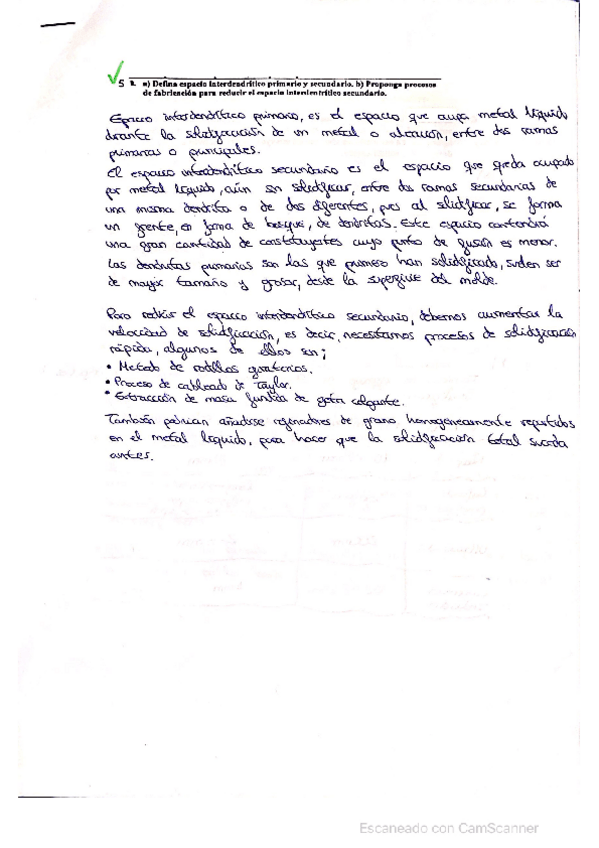 5 1. a) Defina espacio interdendrítico primario y secundario. b) Proponga procesos
de fabricación para reducir el espacio interdentrítico secundario.
Espacio interdendrítico primario, es el espacio que ocupa metal líquido
durante la solidificación de un metal o aleación, entre dos ramas
primarias o principales.
El espacio interdendrítico secundario es el espacio que queda ocupado
por metal líquido, aún sin solidificar, entre dos ramas secundarias de
una misma dendrita o de dos diferentes, pues al solidificar, se forma
un frente, en forma de bosque, de dendritas. Este espacio contendrá
una gran cantidad de constituyentes cuyo punto de fusión es menor.
Las dendritas primarias son las que primero han solidificado, suelen ser
de mayor tamaño y grosor, desde la superficie del molde.
Para reducir el espacio interdendrítico secundario, debemos aumentar la
velocidad de solidificación, es decir, necesitamos procesos de solidificación
rápida, algunos de ellos son;
• Metodo de rodillos giratorios.
• Proceso de cableado de Taylor.
• Extracción de masa fundida de gota colgante.
También podrían añadirse refinadores de grano homogeneamente repartidos
en el metal líquido, para hacer que la solidificación total suceda
antes.
Escaneado con CamScanner